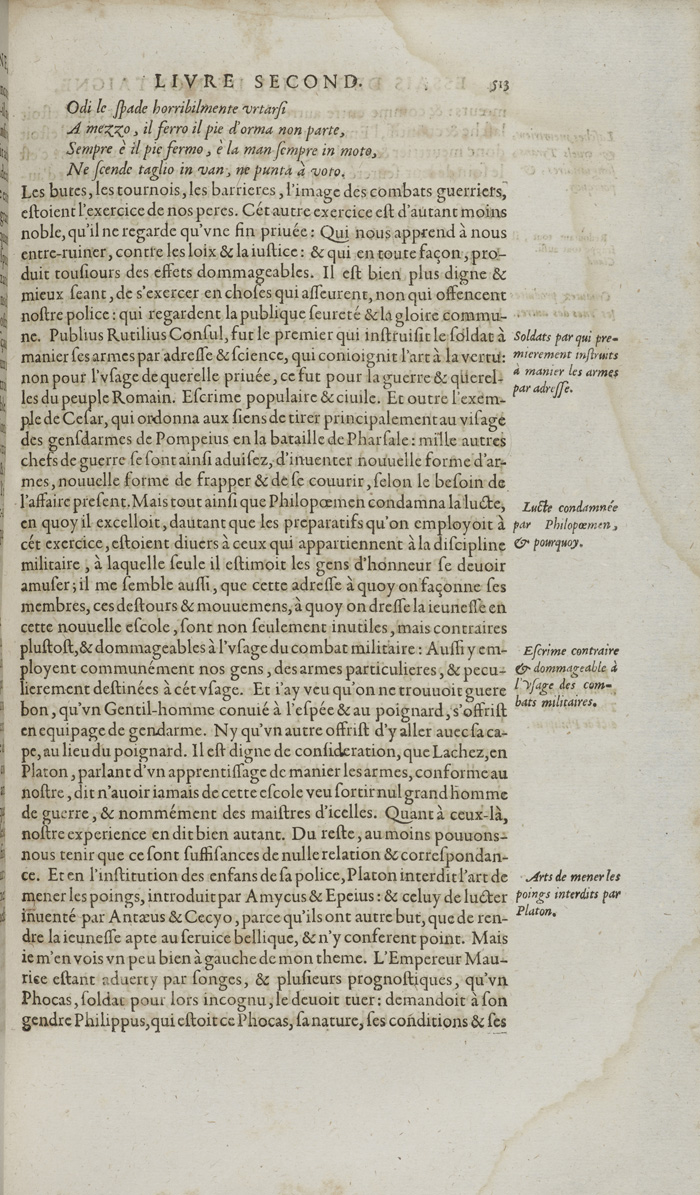 LIVRE SECOND. 513
Odi le ſpade horribilmente vrtarſi
A mezzo, il ferro il pie d'orma non parte,
Sempre è il pie fermo, è la man ſempre in moto,
Ne ſcende taglio in van, ne punta à voto.
Les butes, les tournois, les barrieres, l'image des combats guerriers,
eſtoient l'exercice de nos peres. Cét autre exercice eſt d'autant moins
noble, qu'il ne regarde qu'vne fin priuée: Qui nous apprend à nous
entre-ruiner, contre les loix & la iuſtice: & qui en toute façon, pro-
duit touſiours des effets dommageables. Il eſt bien plus digne &
mieux ſeant, de s'exercer en choſes qui aſſeurent, non qui offencent
noſtre police: qui regardent la publique ſeureté & la gloire commu-
ne. Publius Rutilius Conſul, fut le premier qui inſtruiſit le ſoldat à
manier ſes armes par adreſſe & ſcience, qui conioignit l'art à la vertu:
non pour l'vſage de querelle priuée, ce fut pour la guerre & querel-
les du peuple Romain. Eſcrime populaire & ciuile. Et outre l'exem-
ple de Ceſar, qui ordonna aux ſiens de tirer principalement au viſage
des genſdarmes de Pompeius en la bataille de Pharſale: mille autres
chefs de guerre ſe ſont ainſi aduiſez, d'inuenter nouuelle forme d'ar-
mes, nouuelle forme de frapper & de ſe couurir, ſelon le beſoin de
l'affaire preſent. Mais tout ainſi que Philopœmen condamna la lucte,
en quoy il excelloit, dautant que les preparatifs qu'on employoit à
cét exercice, eſtoient diuers à ceux qui appartiennent à la diſcipline
militaire, à laquelle ſeule il eſtimoit les gens d'honneur ſe deuoir
amuſer; il me ſemble auſſi, que cette adreſſe à quoy on façonne ſes
membres, ces deſtours & mouuemens, à quoy on dreſſe la ieuneſſe en
cette nouuelle eſcole, ſont non ſeulement inutiles, mais contraires
pluſtoſt, & dommageables à l'vſage du combat militaire: Auſſi y em-
ployent communément nos gens, des armes particulieres, & pecu-
lierement deſtinées à cét vſage. Et i'ay veu qu'on ne trouuoit guere
bon, qu'vn Gentil-homme conuié à l'eſpée & au poignard, s'offriſt
en equipage de gendarme. Ny qu'vn autre offriſt d'y aller auec ſa ca-
pe, au lieu du poignard. Il eſt digne de conſideration, que Lachez, en
Platon, parlant d'vn apprentiſſage de manier les armes, conforme au
noſtre, dit n'auoir iamais de cette eſcole veu ſortir nul grand homme
de guerre, & nommément des maiſtres d'icelles. Quant à ceux-là,
noſtre experience en dit bien autant. Du reſte, au moins pouuons-
nous tenir que ce ſont ſuffiſances de nulle relation & correſpondan-
ce. Et en l'inſtitution des enfans de ſa police, Platon interdit l'art de
mener les poings, introduit par Amycus & Epeius: & celuy de lucter
inuenté par Antæus & Cecyo, parce qu'ils ont autre but, que de ren-
dre la ieuneſſe apte au ſeruice bellique, & n'y conferent point. Mais
ie m'en vois vn peu bien à gauche de mon theme. L'Empereur Mau-
rice eſtant aduerty par ſonges, & pluſieurs prognoſtiques, qu'vn
Phocas, ſoldat pour lors incognu, le deuoit tuer: demandoit à ſon
gendre Philippus, qui eſtoit ce Phocas, ſa nature, ſes conditions & ſes
Soldats par qui pre-
mierement inſtruits
à manier les armes
par adreſſe.
Lucte condamnée
par Philopœmen,
& pourquoy.
Eſcrime contraire
& dommageable à
l'vſage des com-
bats militaires.
Arts de mener les
poings interdits par
Platon.